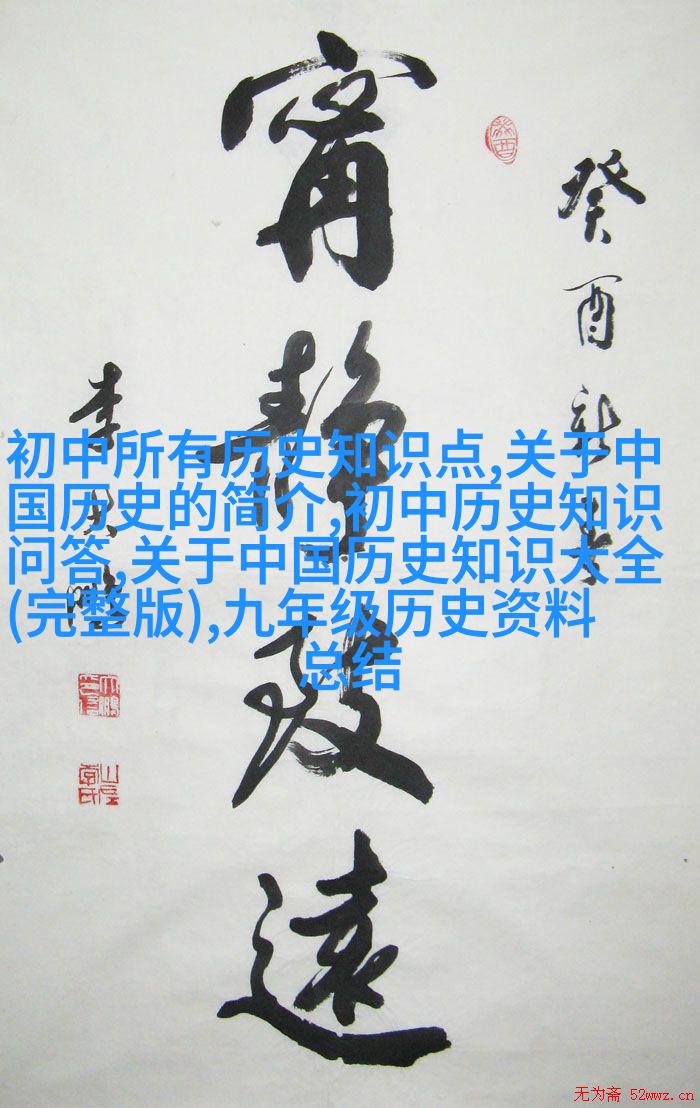 甯靜致遠
癸酉新春
李大鵬
初中所有历史知识点,关于中
国历史的简介,初中历史知识
问答,关于中国历史知识大全
(完整版),九年级历史资料
总结
无为斋 52wwz.cn